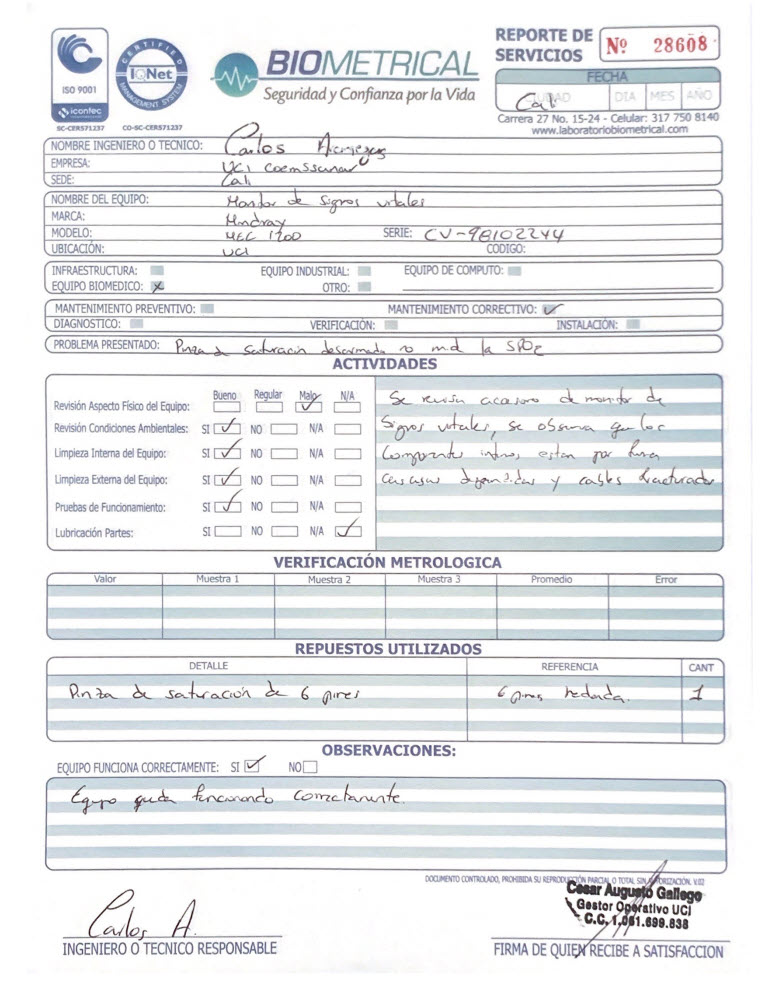 ISO 9001
icontec
SC-CER571237
CERTIFIED
IQNet
MANAGEMENT SYSTEM
CO-SC-CER571237
BIOMETRICAL
Seguridad y Confianza por la Vida
REPORTE DE SERVICIOS Nº 28608
FECHA
CIUDAD DIA MES AÑO
Cali
Carrera 27 No. 15-24 - Celular: 317 750 8140
www.laboratoriobiometrical.com
NOMBRE INGENIERO O TECNICO: Carlos
EMPRESA: UCI Coemssanar
SEDE: Cali
NOMBRE DEL EQUIPO: Monitor de Signos vitales
MARCA: Mindray
MODELO: MEC 1200 SERIE: CV-98102244
UBICACIÓN: UCI CODIGO:
INFRAESTRUCTURA: EQUIPO INDUSTRIAL: EQUIPO DE COMPUTO:
EQUIPO BIOMEDICO: X OTRO:
MANTENIMIENTO PREVENTIVO: MANTENIMIENTO CORRECTIVO: ✓
DIAGNOSTICO: VERIFICACIÓN: INSTALACIÓN:
PROBLEMA PRESENTADO: Pinza de saturación desarmada no mide la SPO2
ACTIVIDADES
Bueno Regular Malo N/A
Revisión Aspecto Físico del Equipo: ✓
Revisión Condiciones Ambientales: SI ✓ NO N/A
Limpieza Interna del Equipo: SI ✓ NO N/A
Limpieza Externa del Equipo: SI ✓ NO N/A
Pruebas de Funcionamiento: SI ✓ NO N/A
Lubricación Partes: SI NO N/A ✓
Se revisa accesorio de monitor de
Signos vitales, se observa que los
Componentes internos estan por fuera
carcasas y cables fracturados
VERIFICACIÓN METROLOGICA
Valor Muestra 1 Muestra 2 Muestra 3 Promedio Error
REPUESTOS UTILIZADOS
DETALLE REFERENCIA CANT
Pinza de saturación de 6 pines 6 pines redonda. 1
OBSERVACIONES:
EQUIPO FUNCIONA CORRECTAMENTE: SI ✓ NO
Equipo queda funcionando correctamente.
DOCUMENTO CONTROLADO, PROHIBIDA SU REPRODUCCIÓN PARCIAL O TOTAL SIN AUTORIZACIÓN. V.02
Cesar Augusto Gallego
Gestor Operativo UCI
C.C. 1.061.699.838
Carlos A.
INGENIERO O TECNICO RESPONSABLE
FIRMA DE QUIEN RECIBE A SATISFACCION